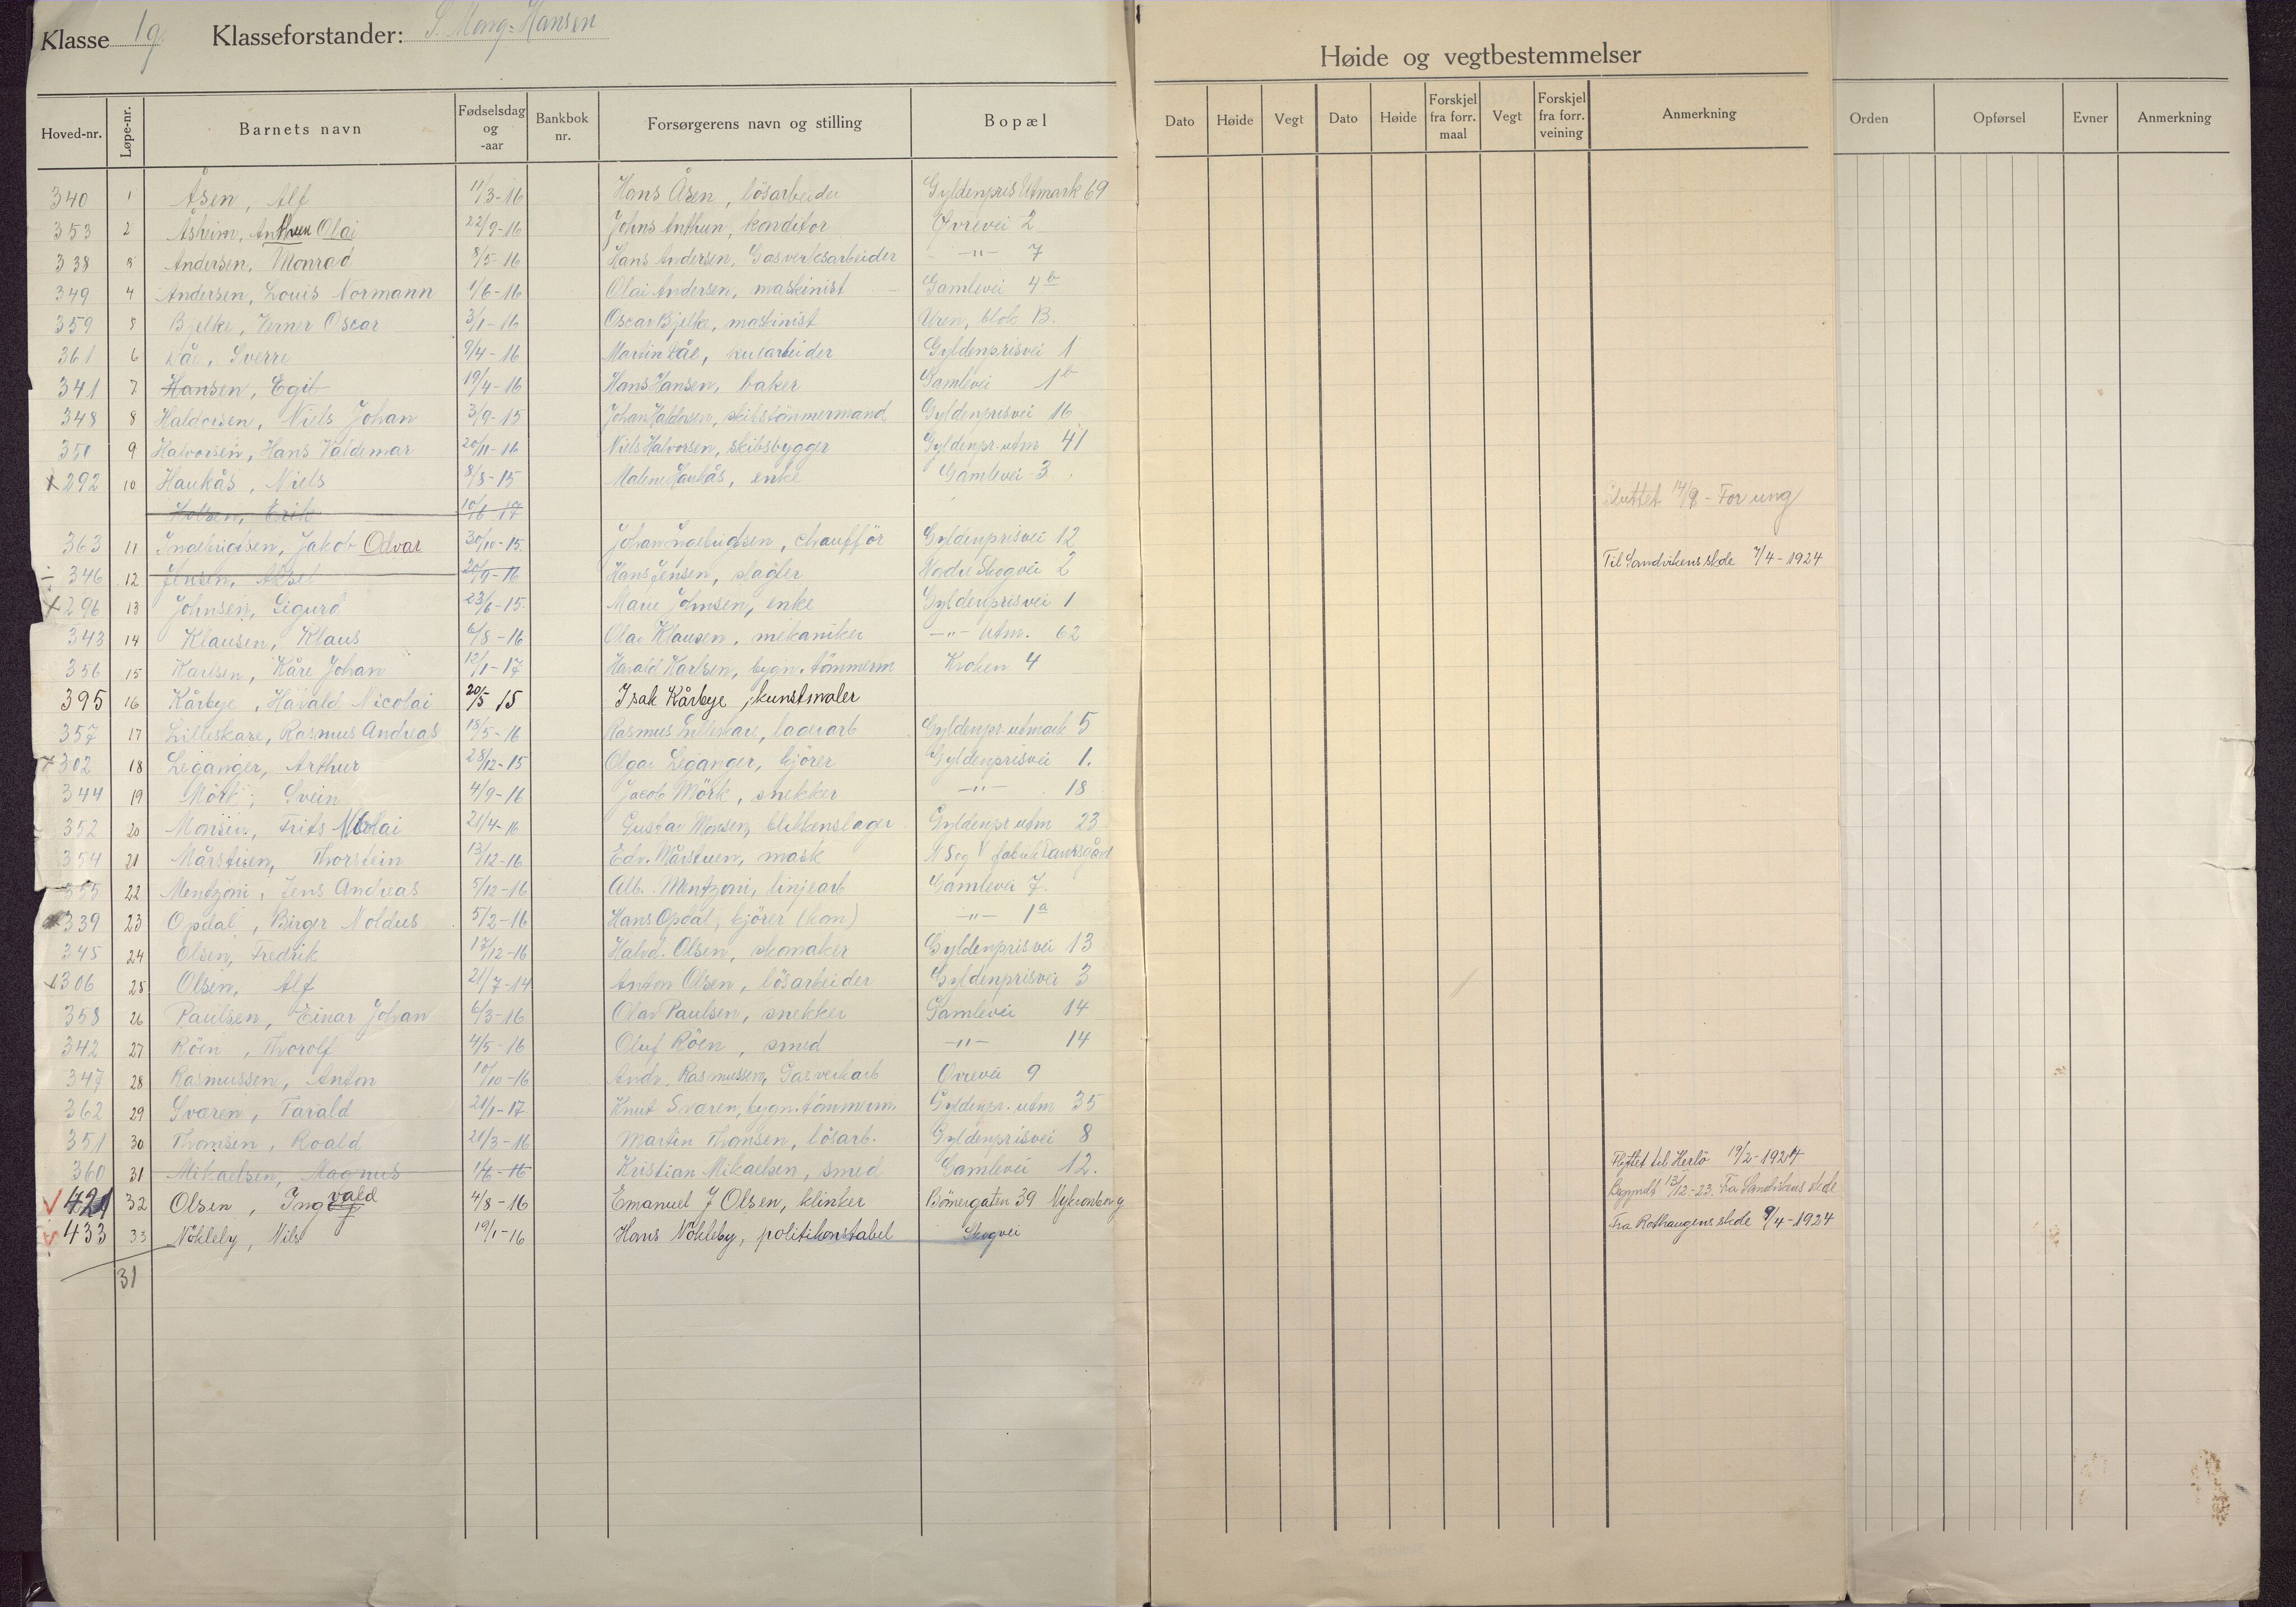 Klasse 1g. Klasseforstander: S. Marg. Hansen
Høide og vegtbestemmelser
Hoved-nr. Løpe-nr. Barnets navn Fødselsdag og -aar Bankbok nr. Forsørgerens navn og stilling Bopæl Dato Høide Vegt Dato Høide Forskjel fra forr. maal Vegt Forskjel fra forr. veining Anmerkning Orden Opførsel Evner Anmerkning
340 1 Åsen, Alf 11/3-16 Hans Åsen, lösarbeider Gyldenpris Utmark 69
353 2 Åsheim, Anthun Olai 22/9-16 Johns Anthun, konditor Øvrevei 2
338 3 Andersen, Monrad 8/5-16 Hans Andersen, Gasverksarbeider -"- 7
349 4 Andersen, Louis Normann 1/6-16 Olai Andersen, maskinist Gamlevei 4b
359 5 Bjelke, Verner Oscar 3/1-16 Oscar Bjelke, maskinist Uren, blok B.
361 6 Sverre 9/4-16 Martin Gyldenprisvei 1
341 7 Hansen, Egil 19/4-16 Hans Hansen, baker Gamlevei 1b
348 8 Haldorsen, Niels Johan 3/9-15 Johan Haldorsen, skibstömmermand Gyldenprisvei 16
350 9 Halvorsen, Hans Valdemar 20/11-16 Niels Halvorsen, skibsbygger Gyldenpr. utm 41
x 292 10 Haukås, Niels 8/8-15 Malene Haukås, enke Gamlevei 3
Holsen, Erik 10/6-17 Sluttet 14/9 - For ung
363 11 Ingebrigtsen, Jakob Odvar 30/10-15 Johan Ingebrigtsen, chaufför Gyldenprisvei 12
÷ 346 12 Jensen, Aksel 20/9-16 Hans Jensen, slagter Nedre Skogvei 2 Til Sandvikens skole 7/4-1924
x 296 13 Johnsen, Sigurd 23/6-15. Marie Johnsen, enke Gyldenprisvei 1
343 14 Klausen, Klaus 6/8-16 Olav Klausen, mekaniker -"- Utm. 62
356 15 Karlsen, Kåre Johan 12/1-17 Harald Karlsen, bygn. tömmerm Kroken 4
395 16 Kårbye, Harald Nicolai 20/5 15 Isak Kårbye, kunstmaler
357 17 Lilleskare, Rasmus Andreas 18/5-16 Rasmus Lilleskare, lagerarb Gyldenpr. utmark 5
x 302 18 Leganger, Arthur 28/12-15 Olga Leganger, kjörer Gyldenprisvei 1.
344 19 Mörk, Svein 4/9-16 Jacob Mörk, snekker -"- 18
352 20 Monsen, Frits Nikolai 21/4-16 Gustav Monsen, blikkenslager Gyldenpr. utm 23
354 21 Mårstuen, Thorstein 13/12-16 Edv. Mårstuen, mask
355 22 Mentzoni, Jens Andreas 5/12-16 Alb. Mentzoni, linjearb Gamlevei 7.
339 23 Opdal, Birger Noldus 5/2-16 Hans Opdal, kjörer (kom) -"- 1a
345 24 Olsen, Fredrik 17/12-16 Halvd. Olsen, skomaker Gyldenprisvei 13
x 306 25 Olsen, Alf 21/7-14 Anton Olsen, lösarbeider Gyldenprisvei 3
358 26 Paulsen, Einar Johan 6/3-16 Olav Paulsen, snekker Gamlevei 14
342 27 Röen, Thorolf 4/5-16 Oluf Röen, smed -"- 14
347 28 Rasmussen, Anton 10/10-16 Andr. Rasmussen, Gasverkarb Øvrevei 9
362 29 Sværen, Tarald 21/1-17 Knut Sværen, bygn. tömmerm. Gyldenpr. utm 35
351 30 Thomsen, Roald 21/3-16 Martin Thomsen, lösarb. Gyldenprisvei 8
360 31 Mikaelsen, Magnus 1/6-16 Kristian Mikaelsen, smed Gamlevei 12. Flyttet til Herlö 19/2-1924
V 421 32 Olsen, Ingvald 4/8-16 Emanuel J Olsen, klinker Bömergaten 39 Nykronborg Begyndt 13/12-23. Fra Sandvikens skole
433 33 Nökleby, Nils 19/1-16 Hans Nökleby, politikonstabel Skogvei Fra Rothaugens skole 9/4-1924
31